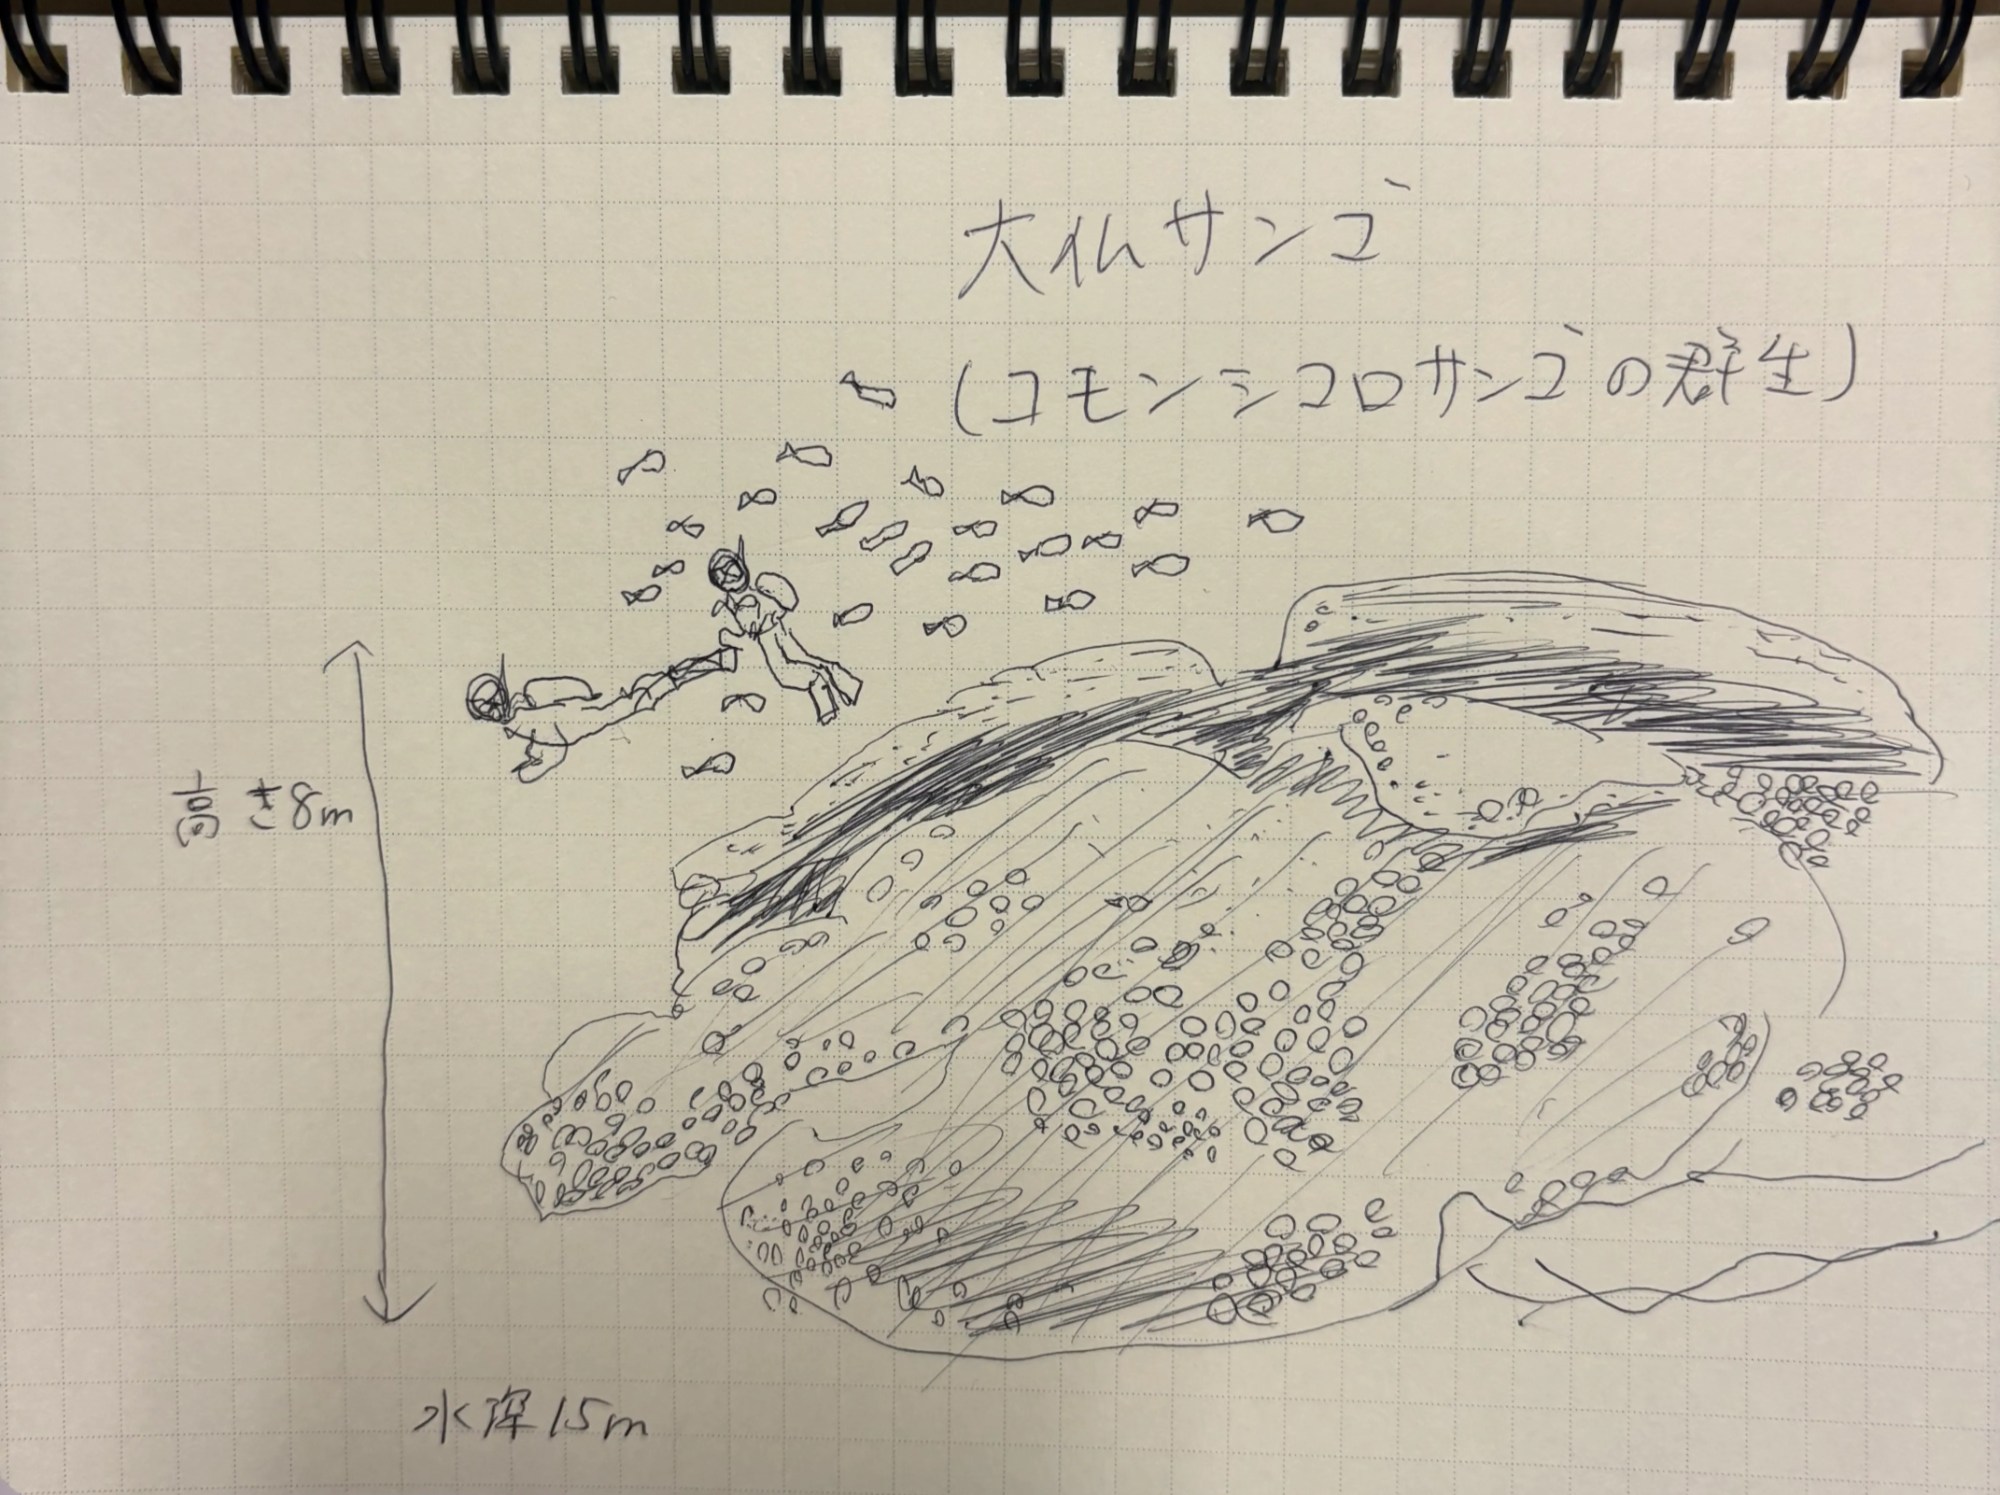 大仏サンゴ
(コモンシコロサンゴの群生)
高さ8m
水深15m